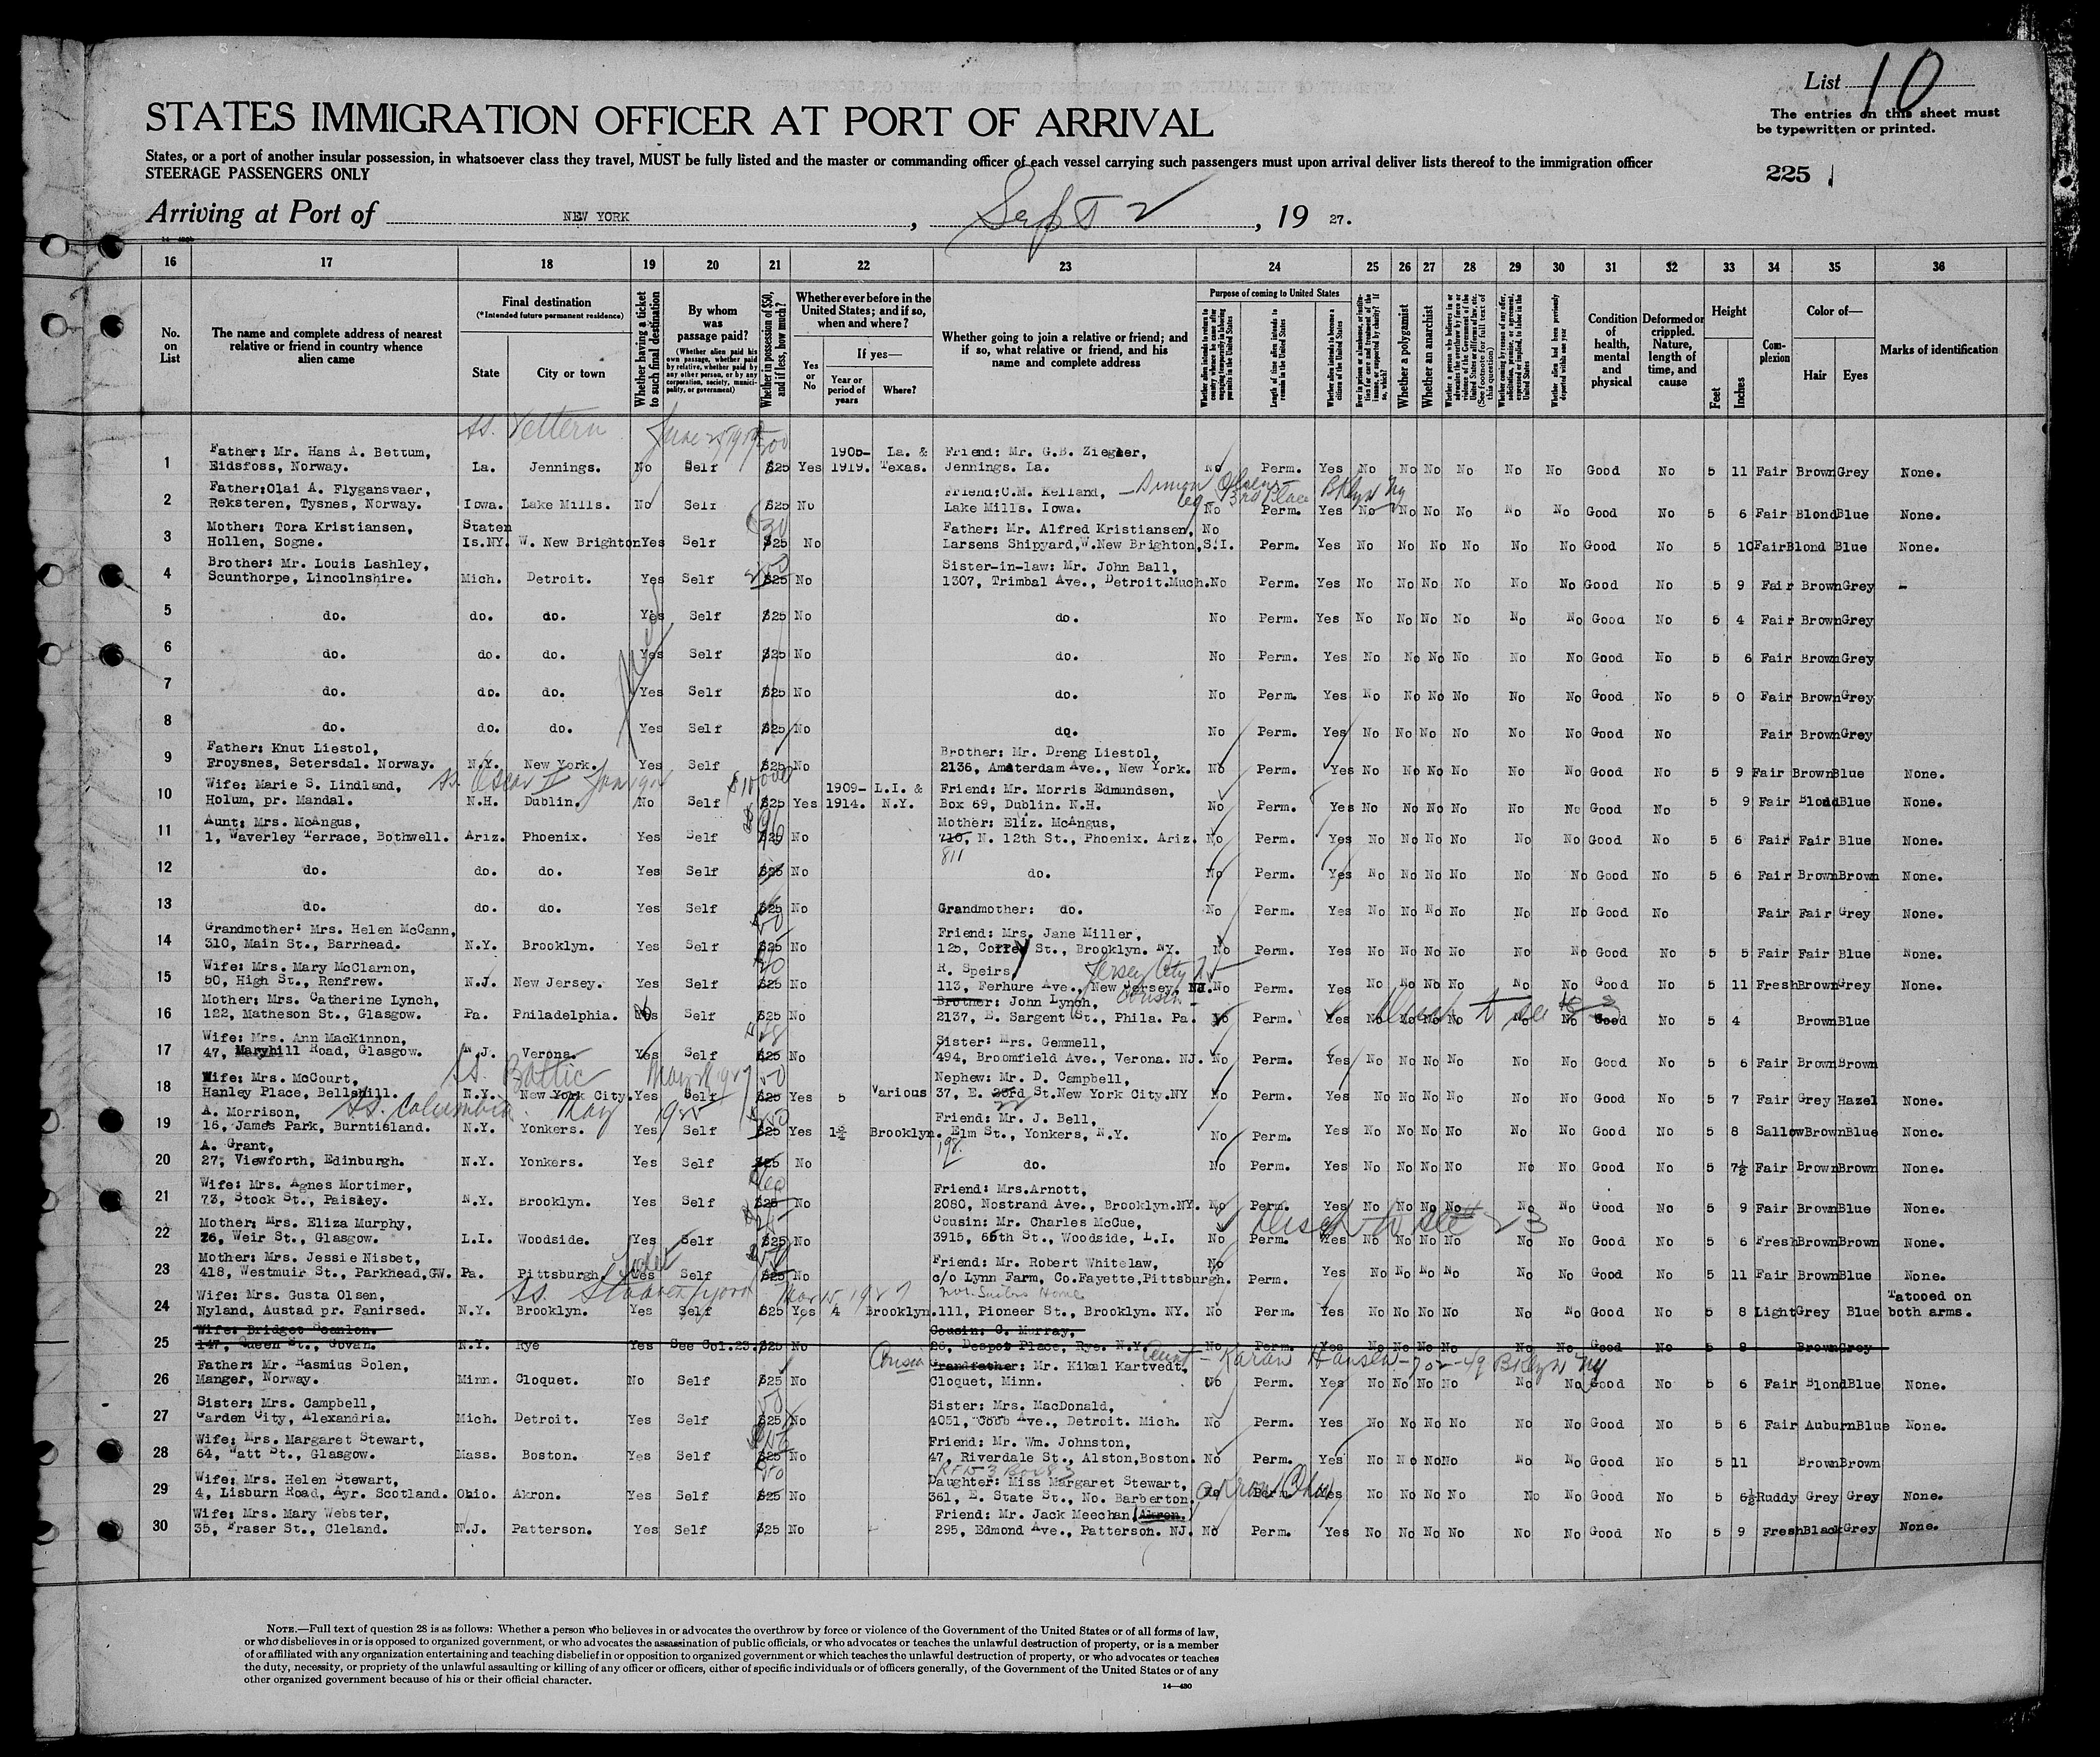 List 10
The entries on this sheet must
be typewritten or printed.
STATES IMMIGRATION OFFICER AT PORT OF ARRIVAL
States, or a port of another insular possession, in whatsoever class they travel, MUST be fully listed and the master or commanding officer of each vessel carrying such passengers must upon arrival deliver lists thereof to the immigration officer
STEERAGE PASSENGERS ONLY
225
Arriving at Port of NEW YORK, Sept 2, 19 27.
16 17 18 19 20 21 22 23 24 25 26 27 28 29 30 31 32 33 34 35 36
No. on List
The name and complete address of nearest relative or friend in country whence alien came
Final destination
(*Intended future permanent residence)
State
City or town
Whether having a ticket to such final destination
By whom was passage paid?
(Whether alien paid his own passage, whether paid by relative, whether paid by any other person, or by any corporation, society, municipality, or government)
Whether in possession of $50, and if less, how much?
Whether ever before in the United States; and if so, when and where?
Yes or No
If yes—
Year or period of years
Where?
Whether going to join a relative or friend; and if so, what relative or friend, and his name and complete address
Purpose of coming to United States
Length of time alien intends to remain in the United States
Whether alien intends to become a citizen of the United States
Whether a polygamist
Whether an anarchist
Condition of health, mental and physical
Deformed or crippled. Nature, length of time, and cause
Height
Feet
Inches
Complexion
Color of—
Hair
Eyes
Marks of identification
ss. Vellern June 25 1919
1 Father: Mr. Hans A. Bettum, Eidsfoss, Norway. La. Jennings. No Self $25 Yes 1905-1919. La. & Texas. Friend: Mr. G.B. Ziegler, Jennings. La. No Perm. Yes No No No No No No Good No 5 11 Fair Brown Grey None.
2 Father:Olai A. Flygansvaer, Reksteren, Tysnes, Norway. Iowa. Lake Mills. No Self $25 No Friend:C.M. Kelland, Lake Mills. Iowa. No Perm. Yes No No No No No No Good No 5 6 Fair Blond Blue None.
3 Mother: Tora Kristiansen, Hollen, Sogne. Staten Is.NY. W. New Brighton Yes Self $25 No Father: Mr. Alfred Kristiansen, Larsens Shipyard,W.New Brighton,S.I. No Perm. Yes No No No No No No Good No 5 10 Fair Blond Blue None.
4 Brother: Mr. Louis Lashley, Scunthorpe, Lincolnshire. Mich. Detroit. Yes Self $25 No Sister-in-law: Mr. John Ball, 1307, Trimbal Ave., Detroit.Much. No Perm. Yes No No No No No No Good No 5 9 Fair Brown Grey -
5 do. do. do. Yes Self $25 No do. No Perm. Yes No No No No No No Good No 5 4 Fair Brown Grey
6 do. do. do. Yes Self $25 No do. No Perm. Yes No No No No No No Good No 5 6 Fair Brown Grey
7 do. do. do. Yes Self $25 No do. No Perm. Yes No No No No No No Good No 5 0 Fair Brown Grey
8 do. do. do. Yes Self $25 No do. No Perm. Yes No No No No No No Good No Fair Brown Grey
9 Father: Knut Liestol, Froysnes, Setersdal. Norway. N.Y. New York. Yes Self $25 No Brother: Mr. Dreng Liestol, 2136, Amsterdam Ave., New York. No Perm. Yes No No No No No No Good No 5 9 Fair Brown Blue None.
ss. Oscar II
10 Wife: Marie S. Lindland, Holum, pr. Mandal. N.H. Dublin. No Self $25 Yes 1909-1914. L.I. & N.Y. Friend: Mr. Morris Edmundsen, Box 69, Dublin. N.H. No Perm. Yes No No No No No No Good No 5 9 Fair Blond Blue None.
11 Aunt: Mrs. McAngus, 1, Waverley Terrace, Bothwell. Ariz. Phoenix. Yes Self $25 No Mother: Eliz. McAngus, 710, N. 12th St., Phoenix. Ariz. 811 No Perm. Yes No No No No No No Good No 5 6 Fair Fair Blue None.
12 do. do. do. Yes Self $25 No do. No Perm. Yes No No No No No No Good No 5 6 Fair Brown Brown None.
13 do. do. do. Yes Self $25 No Grandmother: do. No Perm. Yes No No No No No No Good No Fair Fair Grey None.
14 Grandmother: Mrs. Helen McCann, 310, Main St., Barrhead. N.Y. Brooklyn. Yes Self $25 No Friend: Mrs. Jane Miller, 125, Correy St., Brooklyn. NY. No Perm. Yes No No No No No No Good No 5 5 Fair Fair Blue None.
15 Wife: Mrs. Mary McClarnon, 50, High St., Renfrew. N.J. New Jersey. Yes Self $25 No R. Speirs, 113, Ferhure Ave., New Jersey, NJ. Jersey City No Perm. Yes No No No No No No Good No 5 11 Fresh Brown Grey None.
16 Mother: Mrs. Catherine Lynch, 122, Matheson St., Glasgow. Pa. Philadelphia. Self $25 No Brother: John Lynch, Cousin 2137, E. Sargent St., Phila. Pa. No Perm. Yes No No No No No No Good No 5 4 Brown Blue
17 Wife: Mrs. Ann MacKinnon, 47, Maryhill Road, Glasgow. N.J. Verona. Yes Self $25 No Sister: Mrs. Gemmell, 494, Broomfield Ave., Verona. NJ. No Perm. Yes No No No No No No Good No 5 6 Fair Brown Brown
ss. Baltic May 1927
18 Wife: Mrs. McCourt, Hanley Place, Bellshill. N.Y. New York City. Yes Self $25 Yes 5 Various Nephew: Mr. D. Campbell, 37, E. 23rd St.New York City.NY No Perm. Yes No No No No No No Good No 5 7 Fair Grey Hazel None.
ss. Columbia May 1925
19 A. Morrison, 16, James Park, Burntisland. N.Y. Yonkers. Yes Self $25 Yes 1½ Brooklyn. Friend: Mr. J. Bell, Elm St., Yonkers, N.Y. 198 No Perm. Yes No No No No No No Good No 5 8 Sallow Brown Blue None.
20 A. Grant, 27, Viewforth, Edinburgh. N.Y. Yonkers. Yes Self $25 No do. No Perm. Yes No No No No No No Good No 5 7½ Fair Brown Brown None.
21 Wife: Mrs. Agnes Mortimer, 73, Stock St., Paisley. N.Y. Brooklyn. Yes Self $25 No Friend: Mrs.Arnott, 2080, Nostrand Ave., Brooklyn.NY. No Perm. Yes No No No No No No Good No 5 9 Fair Brown Blue None.
22 Mother: Mrs. Eliza Murphy, 26, Weir St., Glasgow. L.I. Woodside. Yes Self $25 No Cousin: Mr. Charles McCue, 3915, 65th St., Woodside, L.I. No Perm. Yes No No No No No No Good No 5 6 Fresh Brown Brown None.
23 Mother: Mrs. Jessie Nisbet, 418, Westmuir St., Parkhead,GW. Pa. Pittsburgh. Yes Self $25 No Friend: Mr. Robert Whitelaw, c/o Lynn Farm, Co.Fayette,Pittsburgh. No Perm. Yes No No No No No No Good No 5 11 Fair Brown Blue None.
ss. Stavangerfjord Mar 15 1927 Nor. Sailors Home
24 Wife: Mrs. Gusta Olsen, Nyland, Austad pr. Fanirsed. N.Y. Brooklyn. Yes Self $25 Yes 4 Brooklyn. 111, Pioneer St., Brooklyn. NY. No Perm. Yes No No No No No No Good No 5 8 Light Grey Blue Tatooed on both arms.
25 Wife: Bridget Scanlon. 147, Queen St., Govan. N.Y. Rye Yes See Col.23. $25 No Cousin: C. Murray, 26, Despot Place, Rye. N.Y. No Perm. Yes No No No No No No Good No 5 8 Brown Grey
Cousin Aunt - Karan Hansen - 702-49 Bklyn Ny
26 Father: Mr. Rasmius Solen, Manger, Norway. Minn. Cloquet. No Self $25 No Grandfather: Mr. Kikal Kartvedt, Cloquet, Minn. No Perm. Yes No No No No No No Good No 5 6 Fair Blond Blue None.
27 Sister: Mrs. Campbell, Garden City, Alexandria. Mich. Detroit. Yes Self $25 No Sister: Mrs. MacDonald, 4051, Cobb Ave., Detroit. Mich. No Perm. Yes No No No No No No Good No 5 6 Fair Auburn Blue None.
28 Wife: Mrs. Margaret Stewart, 64, Watt St., Glasgow. Mass. Boston. Yes Self $25 No Friend: Mr. Wm. Johnston, 47, Riverdale St., Alston,Boston. No Perm. Yes No No No No No No Good No 5 11 Brown Brown
29 Wife: Mrs. Helen Stewart, 4, Lisburn Road, Ayr. Scotland. Ohio. Akron. Yes Self $25 No Daughter: Miss Margaret Stewart, 361, E. State St., No. Barberton, Akron. Akron Ohio No Perm. Yes No No No No No No Good No 5 6½ Ruddy Grey Grey None.
30 Wife: Mrs. Mary Webster, 35, Fraser St., Cleland. N.J. Patterson. Yes Self $25 No Friend: Mr. Jack Meechan, 295, Edmond Ave., Patterson. NJ. No Perm. Yes No No No No No No Good No 5 9 Fresh Black Grey None.
NOTE.—Full text of question 28 is as follows: Whether a person who believes in or advocates the overthrow by force or violence of the Government of the United States or of all forms of law,
or who disbelieves in or is opposed to organized government, or who advocates the assassination of public officials, or who advocates or teaches the unlawful destruction of property, or is a member
of or affiliated with any organization entertaining and teaching disbelief in or opposition to organized government or which teaches the unlawful destruction of property, or who advocates or teaches
the duty, necessity, or propriety of the unlawful assaulting or killing of any officer or officers, either of specific individuals or of officers generally, of the Government of the United States or of any
other organized government because of his or their official character.
14—430